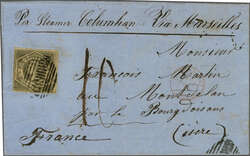 Per Steamer Columbian Via Marseilles
Monsieur
François Martin
au
par le Bourg d'oisans
(isère)
France
10